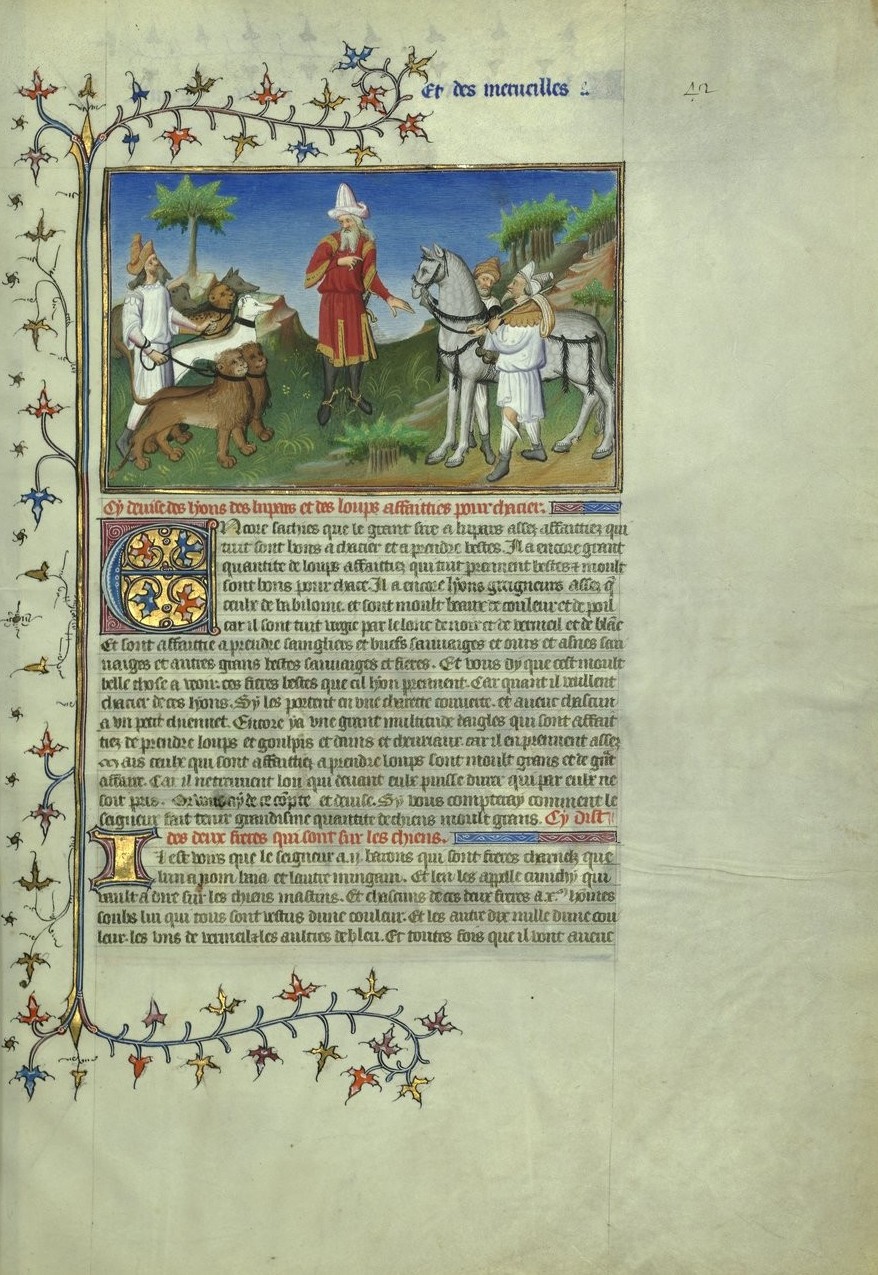 Et des merueilles
42
Cy deuise des lyons des lupars et des loups affaitties pour chacier.
Encore sachies que le grant sire a lupars assez affaittiez qui
tuit sont bons a chacier et a prendre bestes. Il a encore grant
quantite de loups affaittiez qui tuit prennent bestes & moult
sont bons pour chace. Il a encore lyons greigneurs assez q̄
ceulz de babiloine. et sont moult beaux de couleur et de poil
car il sont tuit vergie par le lonc de noir et de vermeil et de blāc
Et sont affaittie a prendre sangliers et buefs sauuaiges et ours et asnes sau
uaiges et autres grans bestes sauuaiges et fieres. Et vous dy que cest moult
belle chose a veoir. ces fieres bestes que cil lyon prennent. Car quant il veullent
chacier de ces lyons. Sy les portent en vne charette couuerte. et auec chascun
a vn petit chiennet. Encore ya vne grant multitude daigles qui sont affait
tiez de prendre loups et goulpis et dains et cheuriaux. car il en prennent assez
Mais ceulz qui sont affaittiez a prendre loups sont moult grans et de grāt
affaire. Car il ne treuuent lou qui deuant eulz puisse durer qui par eulz ne
soit pris. Or vous ay de ce cōpte et deuise. Sy vous compteray comment le
seigneur fait tenir grandisme quantite de chiens moult grans. Cy dist
des deux freres qui sont sur les chiens.
Il est voirs que le seigneur a .ii. barons qui sont freres charnelz que
lun a nom baia et lautre mingam. Et len les appelle cunichy qui
vault a dire sur les chiens mastins. Et chascuns de ces deux freres a .x.ᵐ hōmes
soubs lui qui tous sont vestus dune couleur. Et les autre dix mille dune cou
leur. les vns de vermeil & les aultres de bleu. Et toutes fois que il vont auec